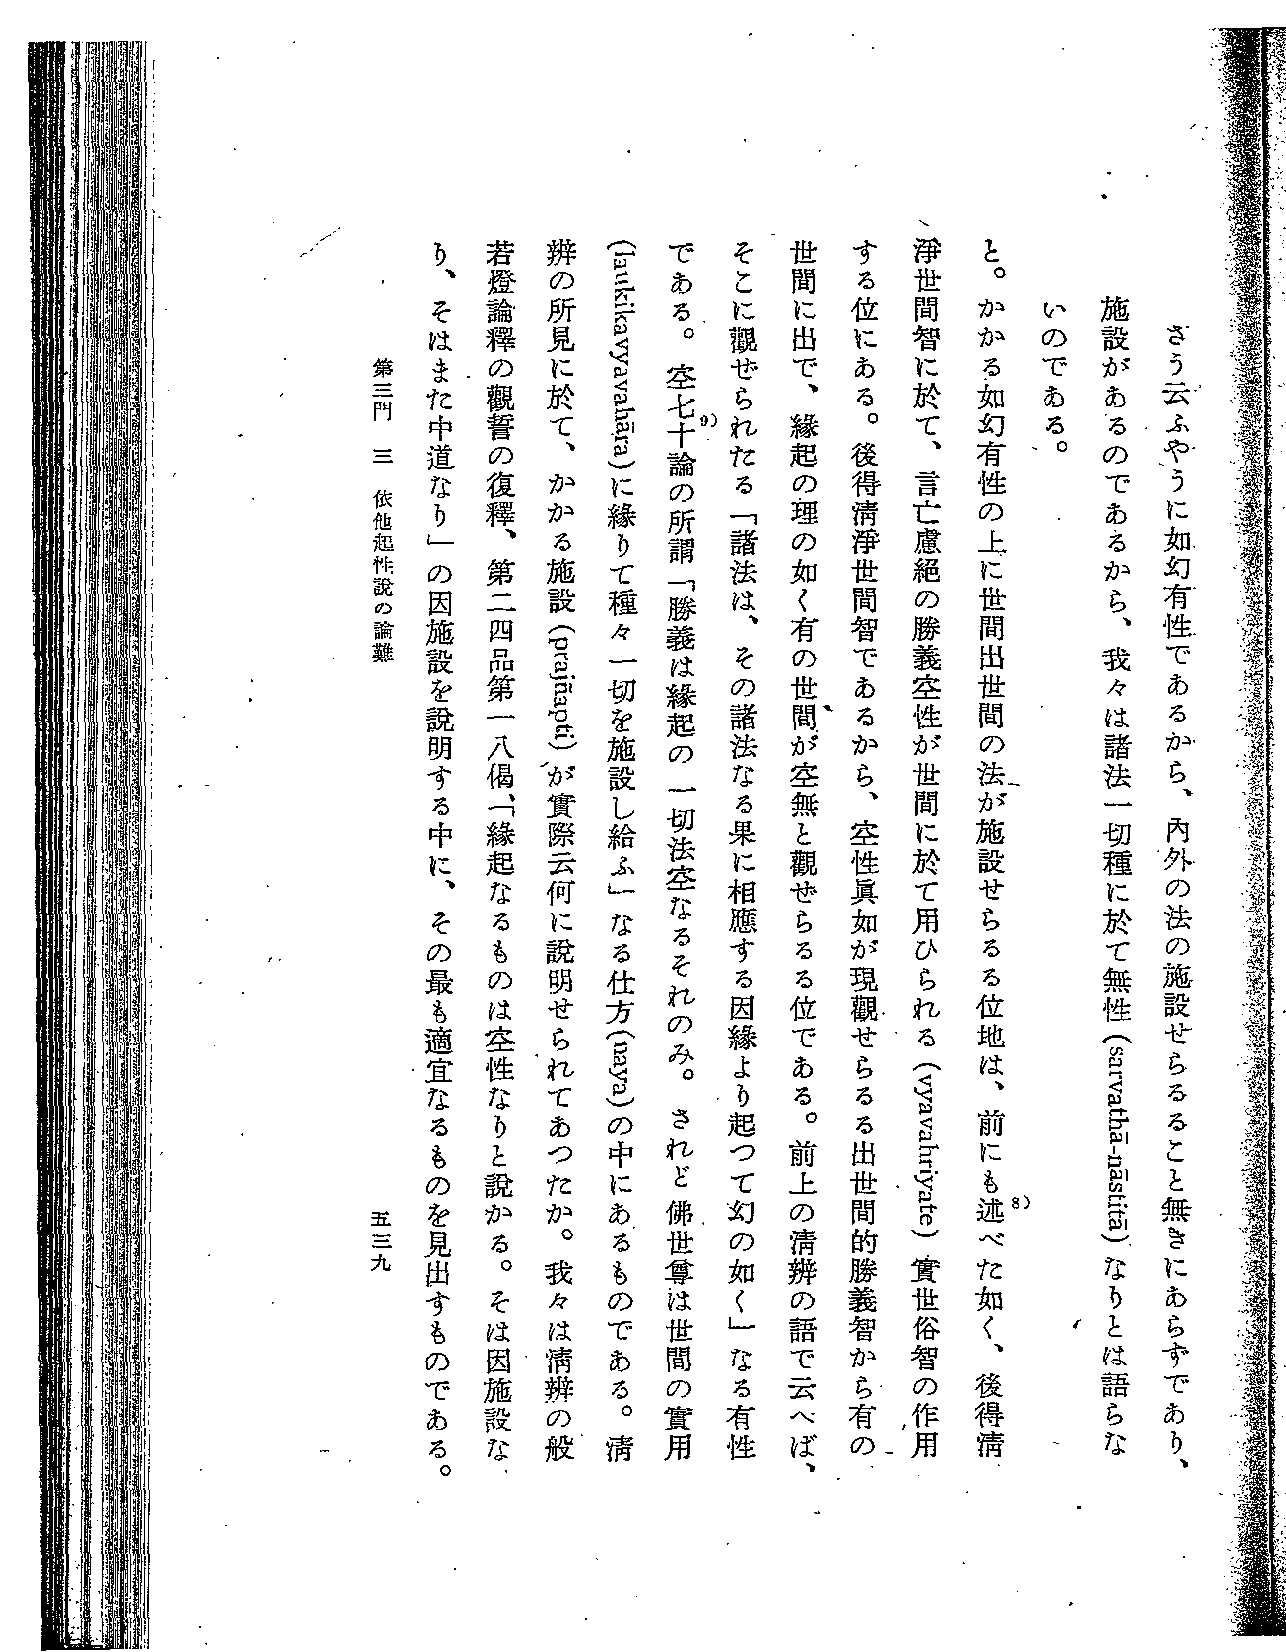 さう云ふやうに如幻有性であるから、內外の法の施設せらるること無きにあらずであり、
施設があるのであるから、我々は諸法一切種に於て無性(sarvathā-nāstitā)なりとは語らな
いのである。
と。かかる如幻有性の上に世間出世間の法が施設せらるる位地は、前にも述べた如く、後得淸8)
淨世間智に於て、言亡慮絕の勝義空性が世間に於て用ひられる(vyavahriyate)實世俗智の作用
する位にある。後得淸淨世間智であるから、空性眞如が現觀せらるる出世間的勝義智から有の
世間に出で、緣起の理の如く有の世間が空無と觀せらるる位である。前上の淸辨の語で云へば、
そこに觀ぜられたる「諸法は、その諸法なる果に相應する因緣より起つて幻の如く」なる有性
である。空七十論9)の所謂「勝義は緣起の一切法空なるそれのみ。されど佛世尊は世間の實用
(laukikavyavahāra)に緣りて種々一切を施設し給ふ」なる仕方(naya)の中にあるものである。淸
辨の所見に於て、かかる施設(prajñapti)が實際云何に說明せられてあつたか。我々は淸辨の般
若燈論釋の觀誓の復釋、第二四品第一八偈、「緣起なるものは空性なりと說かる。そは因施設な
り、そはまた中道なり」の因施設を說明する中に、その最も適宜なるものを見出すものである。
第三門 三 依他起性說の論難
五三九